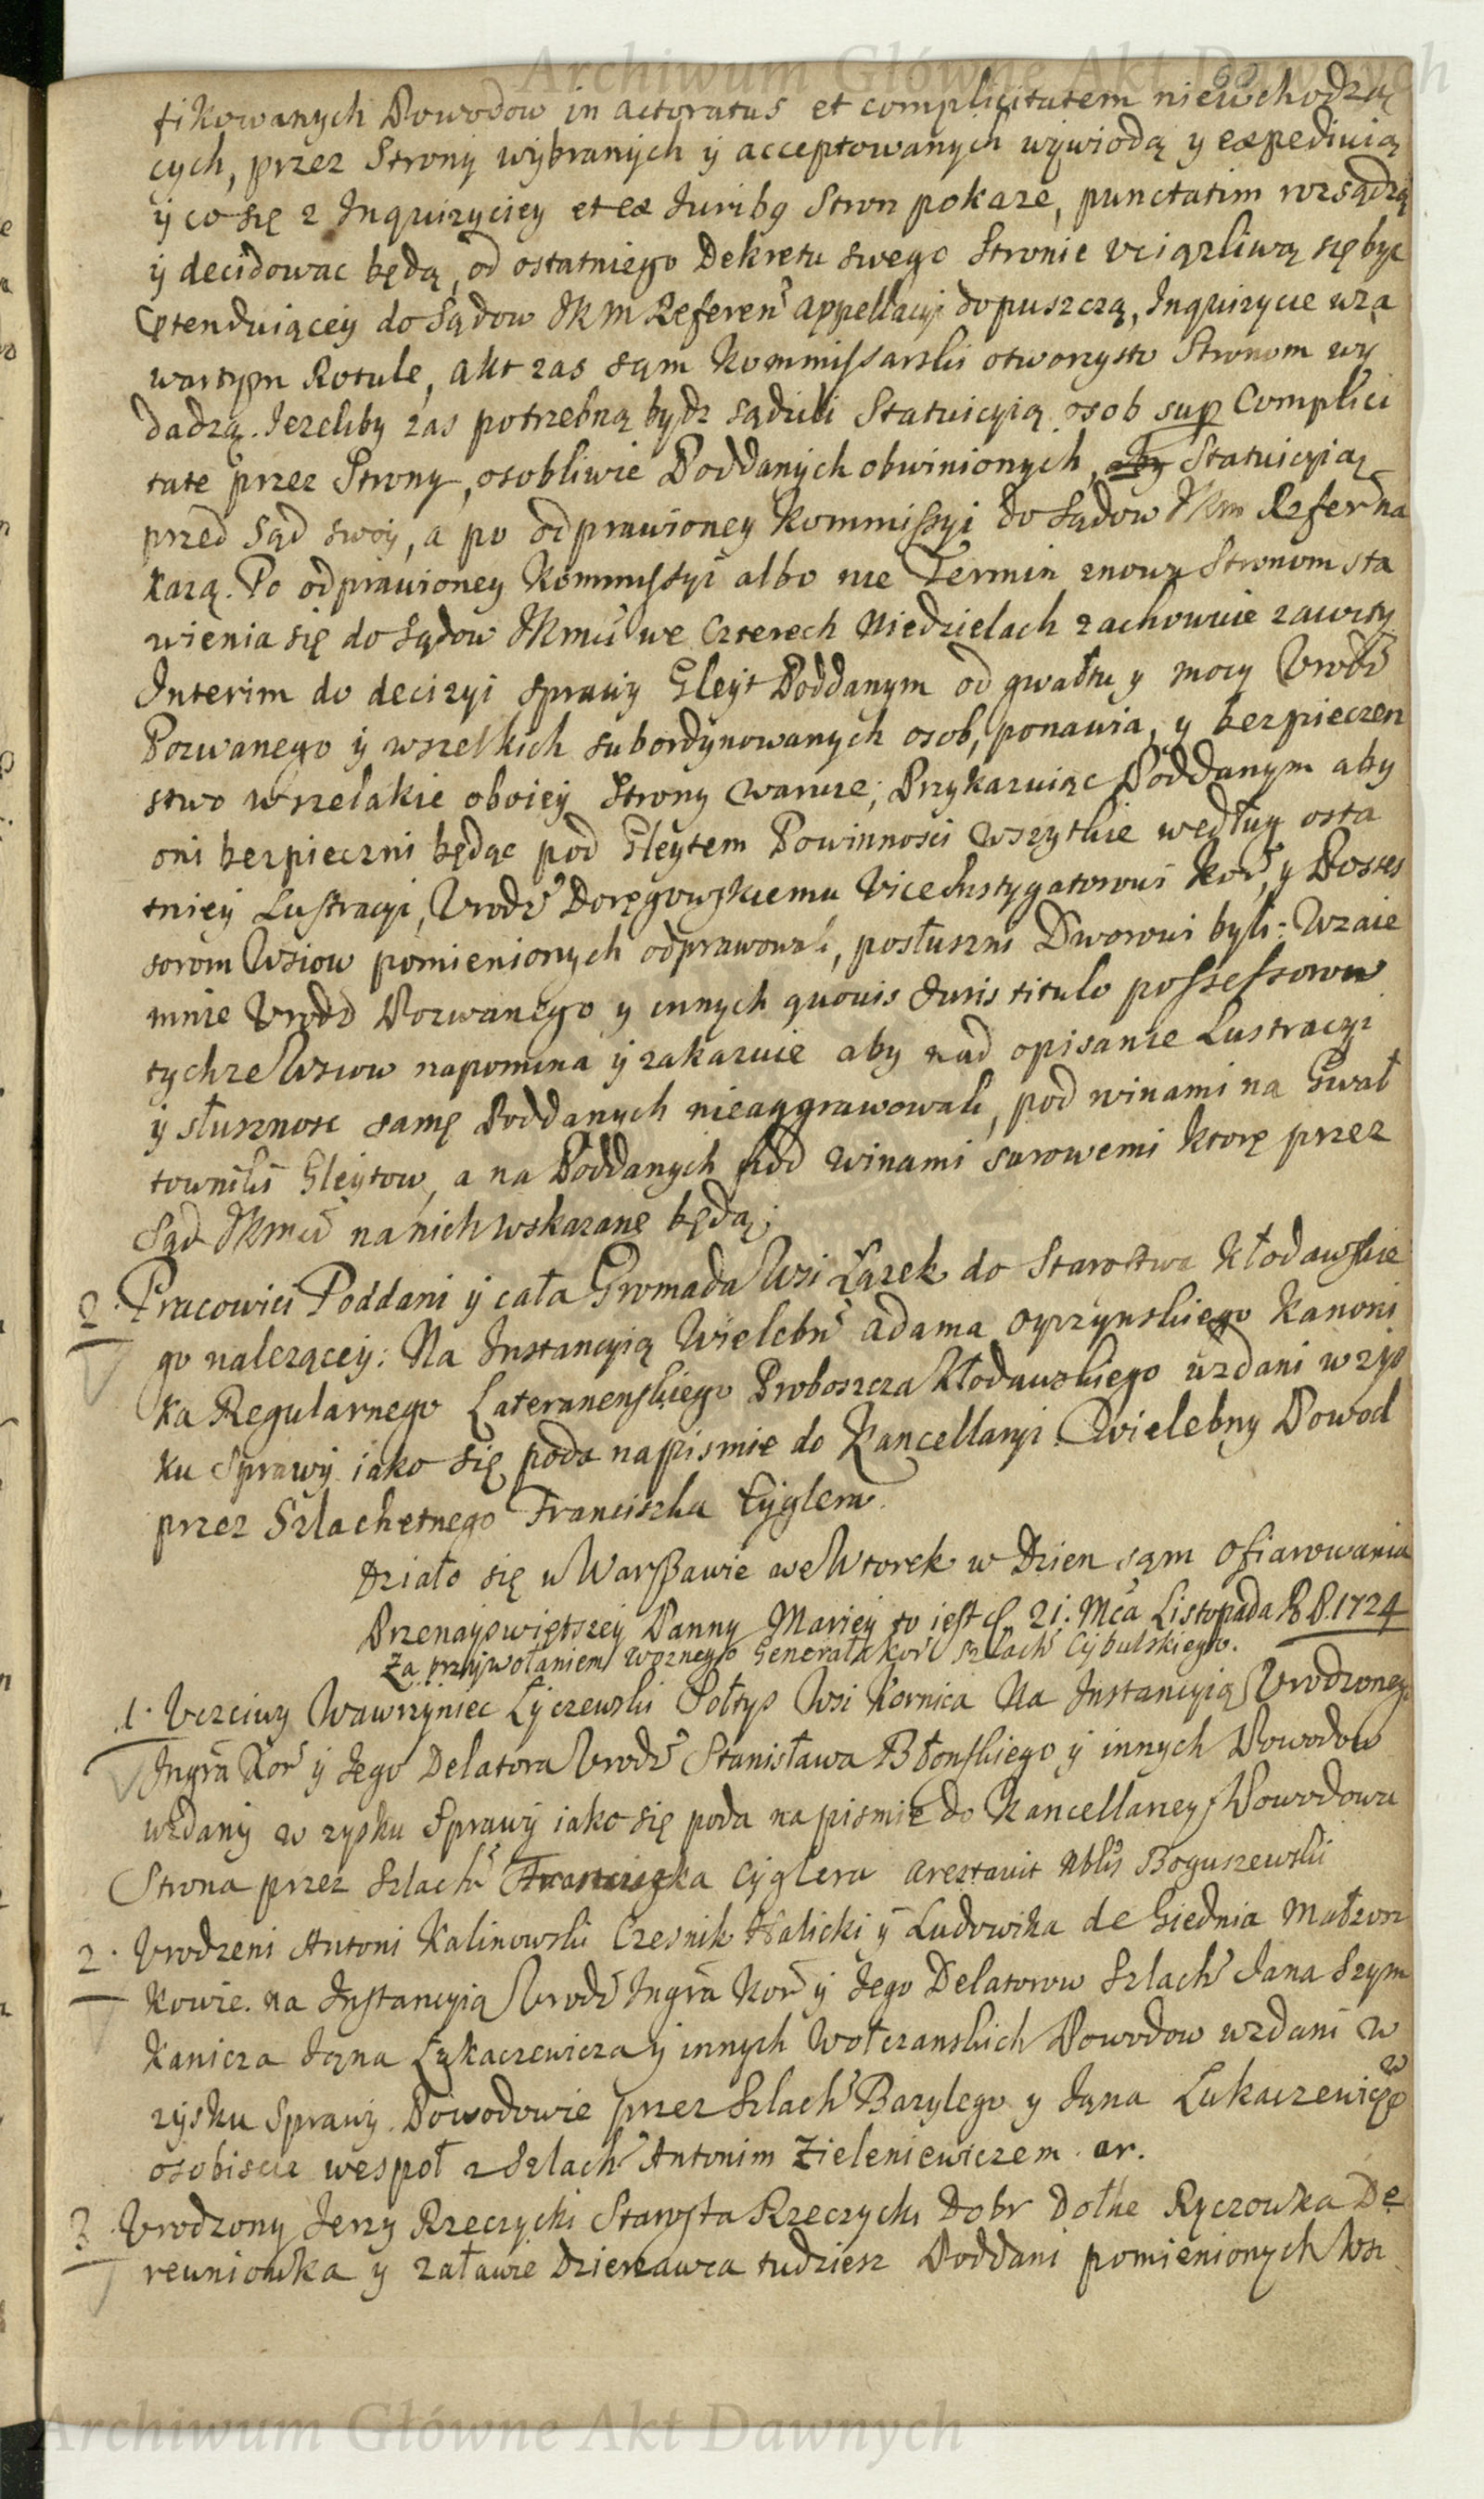 Archiwum Główne Akt Dawnych
fikowanych Dowodow in actoratus et complicitatem niewchodzą
cych, przez Strony wybranych y acceptowanych wywiodą y expediuią
y co się z Inquizyciey et ex Juribq Stron pokaze, punctatim rozsądzą
y decidowac będą, od ostatniego Dekretu swego Stronie vciązliwą się byc
Ptenduiącey do Sądow JKM Referen appellacyi dopuszczą, Inquizycie wza
wartym Rotule, akt zas sąm Kommissarski otworzysto Stronom wy
dadzą. Jezeliby zas potrzebną bydz sądzili Statuicyią osob sup Complici
tate przez Strony, osobliwie Poddanych obwinionych, aby Statuicyią
przed Sąd swoy, a po odprawioney Kommissyi do Sądow JKM Refer na
kazą. Po odprawioney Kommissyi albo nie Termin znowu Stronom sta
wienia się do Sądow JKMci we czterech Niedzielach zachowuie zawity
Interim do decizyi sprawy Gleyt Poddanym od gwałtu y mocy Vrodz
Pozwanego y wszelkich subordynowanych osob, ponawia, y bezpieczen
stwo wszelakie oboiey Strony waruie; Przykazuiąc Poddanym aby
oni bezpieczni będąc pod Gleytem Powinnosci wszytkie według osta
tniey Lustracyi, Vrodz Doręgowskiemu ViceInstygatorowi Kor, y Posses
sorom Wsiow pomienionych odprawowali, posłuszni Dworowi byli: Wzaie
mnie Vrodz Pozwanego y innych quovis Juris titulo possessorow
tychze Wsiow napomina y zakazuie aby nad opisanie Lustracyi
y słusznosc samę Poddanych nieaggrawowali, pod winami na Gwał
towniki Gleytow, a na Poddanych pod winami surowemi ktorę przez
Sąd JKMci na nich wskazanę będą;
2. Pracowici Poddani y cała Gromada Wsi Łązek do Starostwa Kłodawskie
go nalezącey: Na Instancyią Wielebn Adama Oyrzynskiego Kanoni
ka Regularnego Lateranenskiego Proboszcza Kłodawskiego wzdani w zys
ku Sprawy iako się poda na pismie do Kancellaryi. Wielebny Powod
przez Szlachetnego Franciszka Cyglera.
Działo się w Warszawie we Wtorek w Dzien sąm Ofiarowania
Przenayswiętszey Panny Mariey to iest d. 21. Mca Listopada RP. 1724
Za przywołaniem Woznego Generała Kor Szlach Cybulskiego.
1. Vczciwy Wawrzyniec Łyczewski Sołtys Wsi Kornica Na Instancyią Vrodzonego
Ingra Kor y Jego Delatora Vrodz Stanisława Błonskiego y innych Powodow
wzdany w zysku Sprawy iako się poda na pismie do Kancellaryey, Powodowa
Strona przez Szlach Franciszka Cyglera arestavit Nblis Boguszewski
2. Vrodzeni Antoni Kalinowski Czesnik Halicki y Ludowika de Giednia Małzon
kowie. na Instancyią Vrodz Ingra Kor y Jego Delatorow Szlach Jana Szym
kanicza Jąna Łukaczewicza y innych Wołczanskich Powodow wzdani w
zysku Sprawy. Powodowie przez Szlach Bazylego y Jąna Łukaczewiczow
osobiscie wespoł z Szlach Antonim Zieleniewiczem. ar.
3. Vrodzony Jerzy Rzeczycki Starosta Rzeczycki Dobr Dołhe Ryczowka De
reuniowka y Załawie Dzierzawca tudziesz Poddani pomienionych Wsi
Archiwum Główne Akt Dawnych